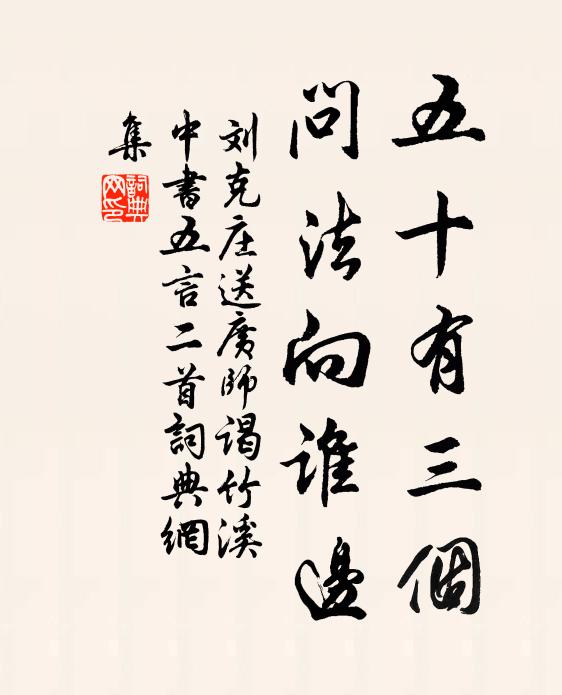 五十有三個
問法向誰邊
刘克庄送廣師謁竹溪
中書五言二首詞典網
集
詞典
网印